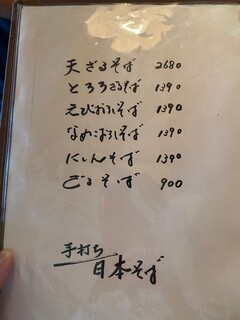 天ざるそば 2680
とろろざるそば 1390
えびおろしそば 1390
なめこおろしそば 1390
にしんそば 1390
ざるそば 900
手打ち
日本そば